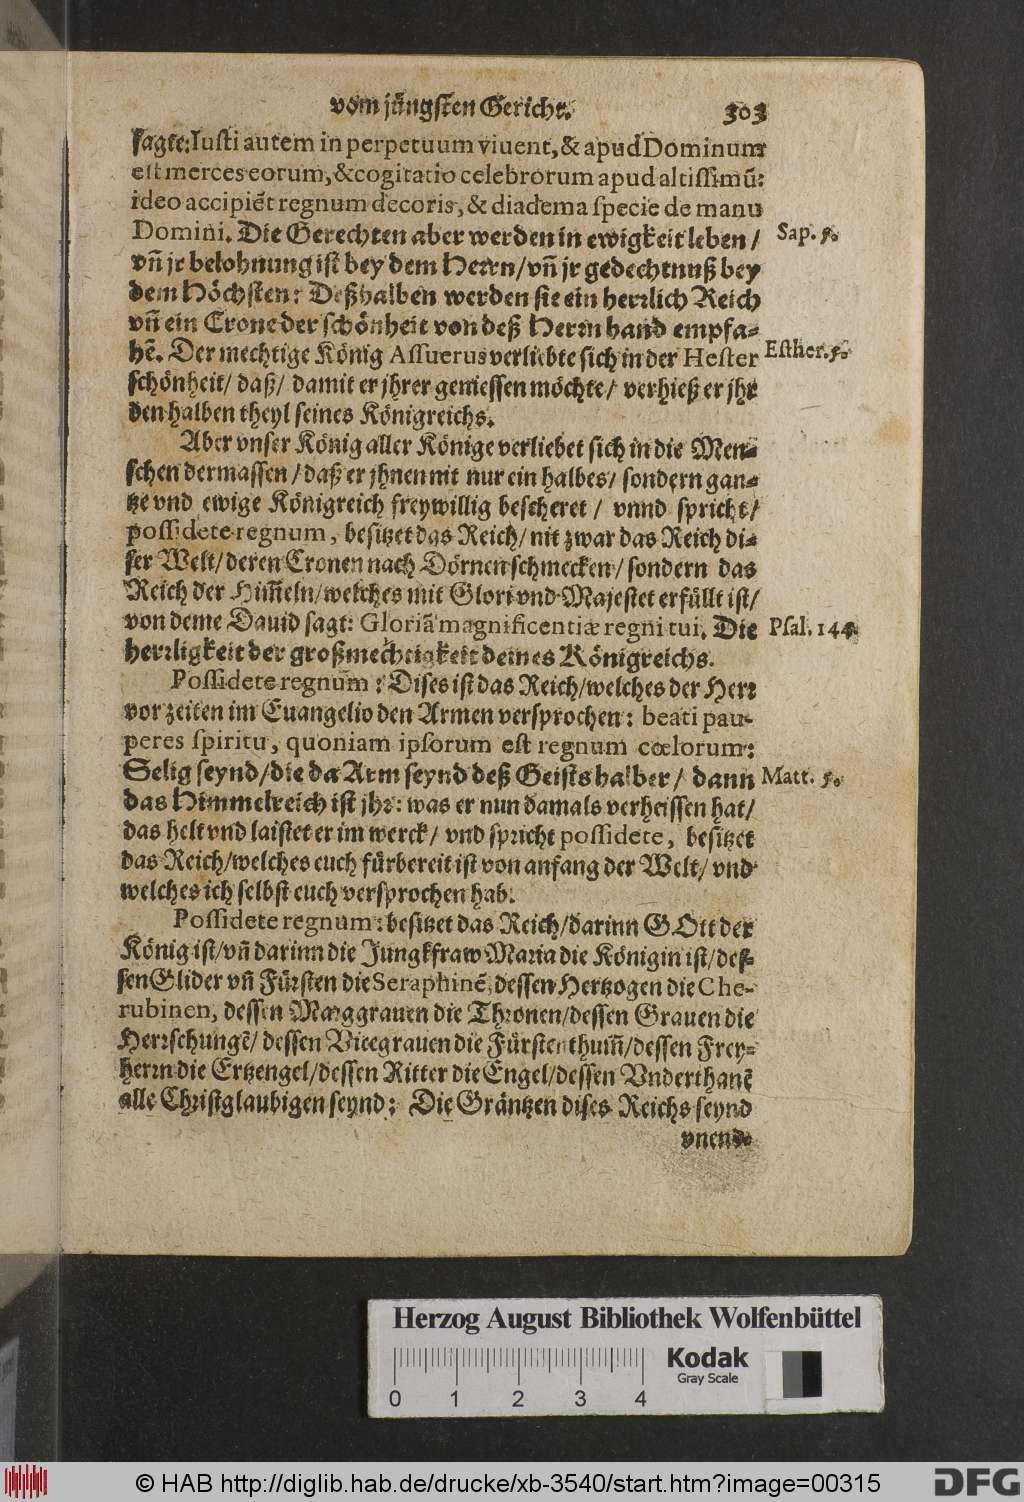 vom jüngsten Gericht. 303
sagte: Iusti autem in perpetuum viuent, & apud Dominum
est merces eorum, & cogitatio celebrorum apud altissimũ:
ideo accipiẽt regnum decoris, & diadema specie de manu
Domini. Die Gerechten aber werden in ewigkeit leben / Sap. 5.
vñ jr belohnung ist bey dem Herrn / vñ jr gedechtnuß bey
dem Höchsten: Deßhalben werden sie ein herrlich Reich
vñ ein Crone der schönheit von deß Herrn hand empfa-
hẽ. Der mechtige König Assuerus verliebte sich in der Hester Esther. 5.
schönheit / daß / damit er jhrer geniessen möchte / verhieß er jhr
den halben theyl seines Königreichs.
Aber vnser König aller Könige verliebet sich in die Men-
schen dermassen / daß er jhnen nit nur ein halbes / sondern gan-
tze vnd ewige Königreich freywillig bescheret / vnnd spricht /
possidete regnum, besitzet das Reich / nit zwar das Reich di-
ser Welt / deren Cronen nach Dörnen schmecken / sondern das
Reich der Him̃eln / welches mit Glori vnd Majestet erfüllt ist /
von deme Dauid sagt: Gloriã magnificentiæ regni tui. Die Psal. 144.
herrligkeit der großmechtigkeit deines Königreichs.
Possidete regnum: Dises ist das Reich / welches der Herr
vor zeiten im Euangelio den Armen versprochen: beati pau-
peres spiritu, quoniam ipsorum est regnum cœlorum:
Selig seynd / die da Arm seynd deß Geists halber / dann Matt. 5.
das Himmelreich ist jhr: was er nun damals verheissen hat /
das helt vnd laistet er im werck / vnd spricht possidete, besitzet
das Reich / welches euch fürbereit ist von anfang der Welt / vnd
welches ich selbst euch versprochen hab.
Possidete regnum: besitzet das Reich / darinn GOtt der
König ist / vñ darinn die Jungkfraw Maria die Königin ist / des-
sen Glider vñ Fürsten die Seraphinẽ, dessen Hertzogen die Che-
rubinen, dessen Marggrauen die Thronen / dessen Grauen die
Herrschungẽ / dessen Vicegrauen die Fürstenthum̃ / dessen Frey-
herrn die Ertzengel / dessen Ritter die Engel / dessen Vnderthanẽ
alle Christglaubigen seynd: Die Gräntzen dises Reichs seynd
vnend-
Herzog August Bibliothek Wolfenbüttel
Kodak
Gray Scale
0 1 2 3 4
© HAB http://diglib.hab.de/drucke/xb-3540/start.htm?image=00315
DFG